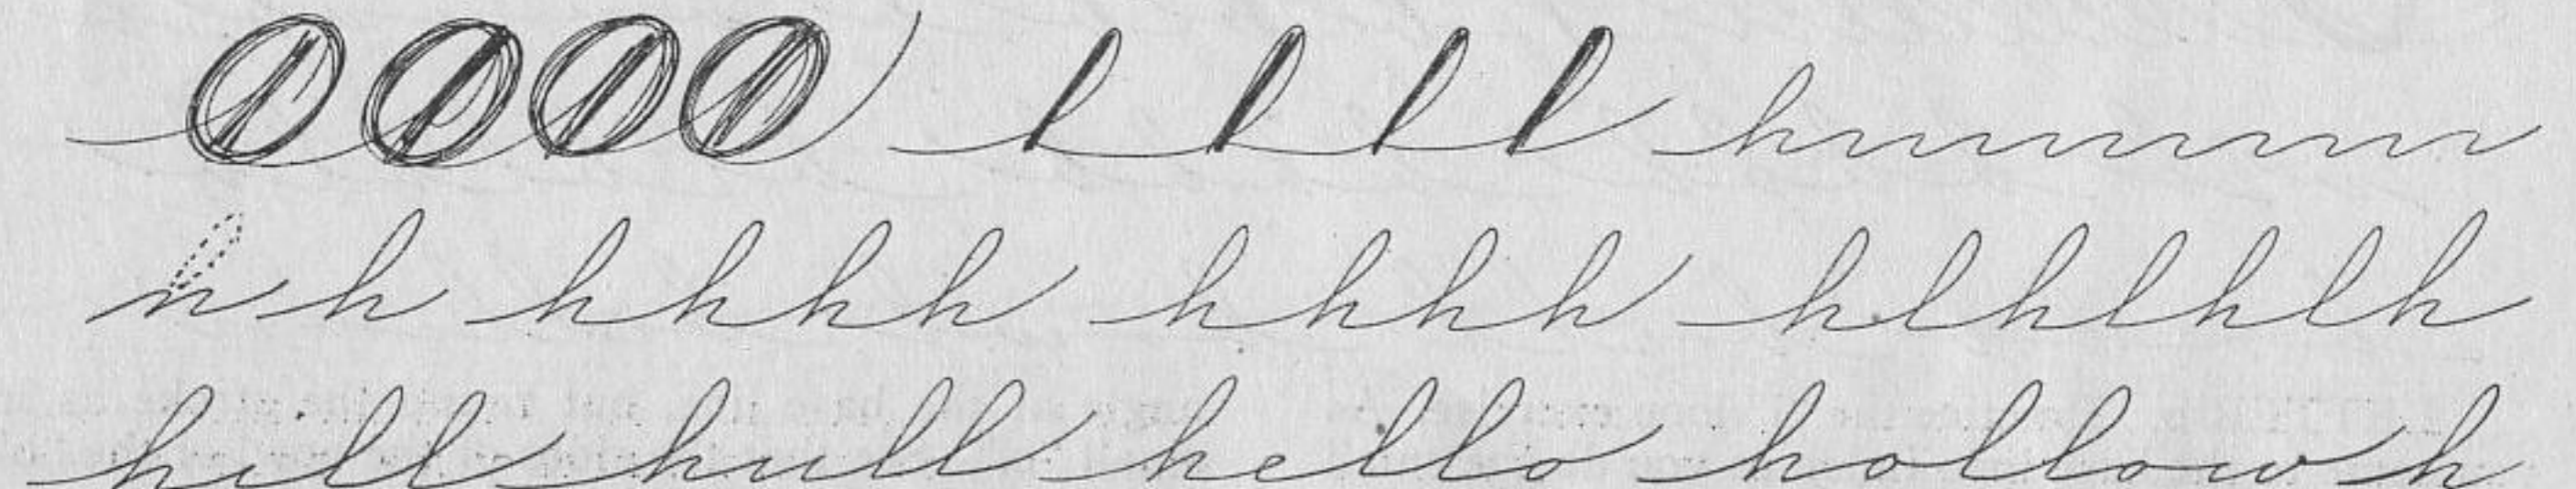 llll
n h hhhh hhhh hlhlhlh
hill hull hello hollow h